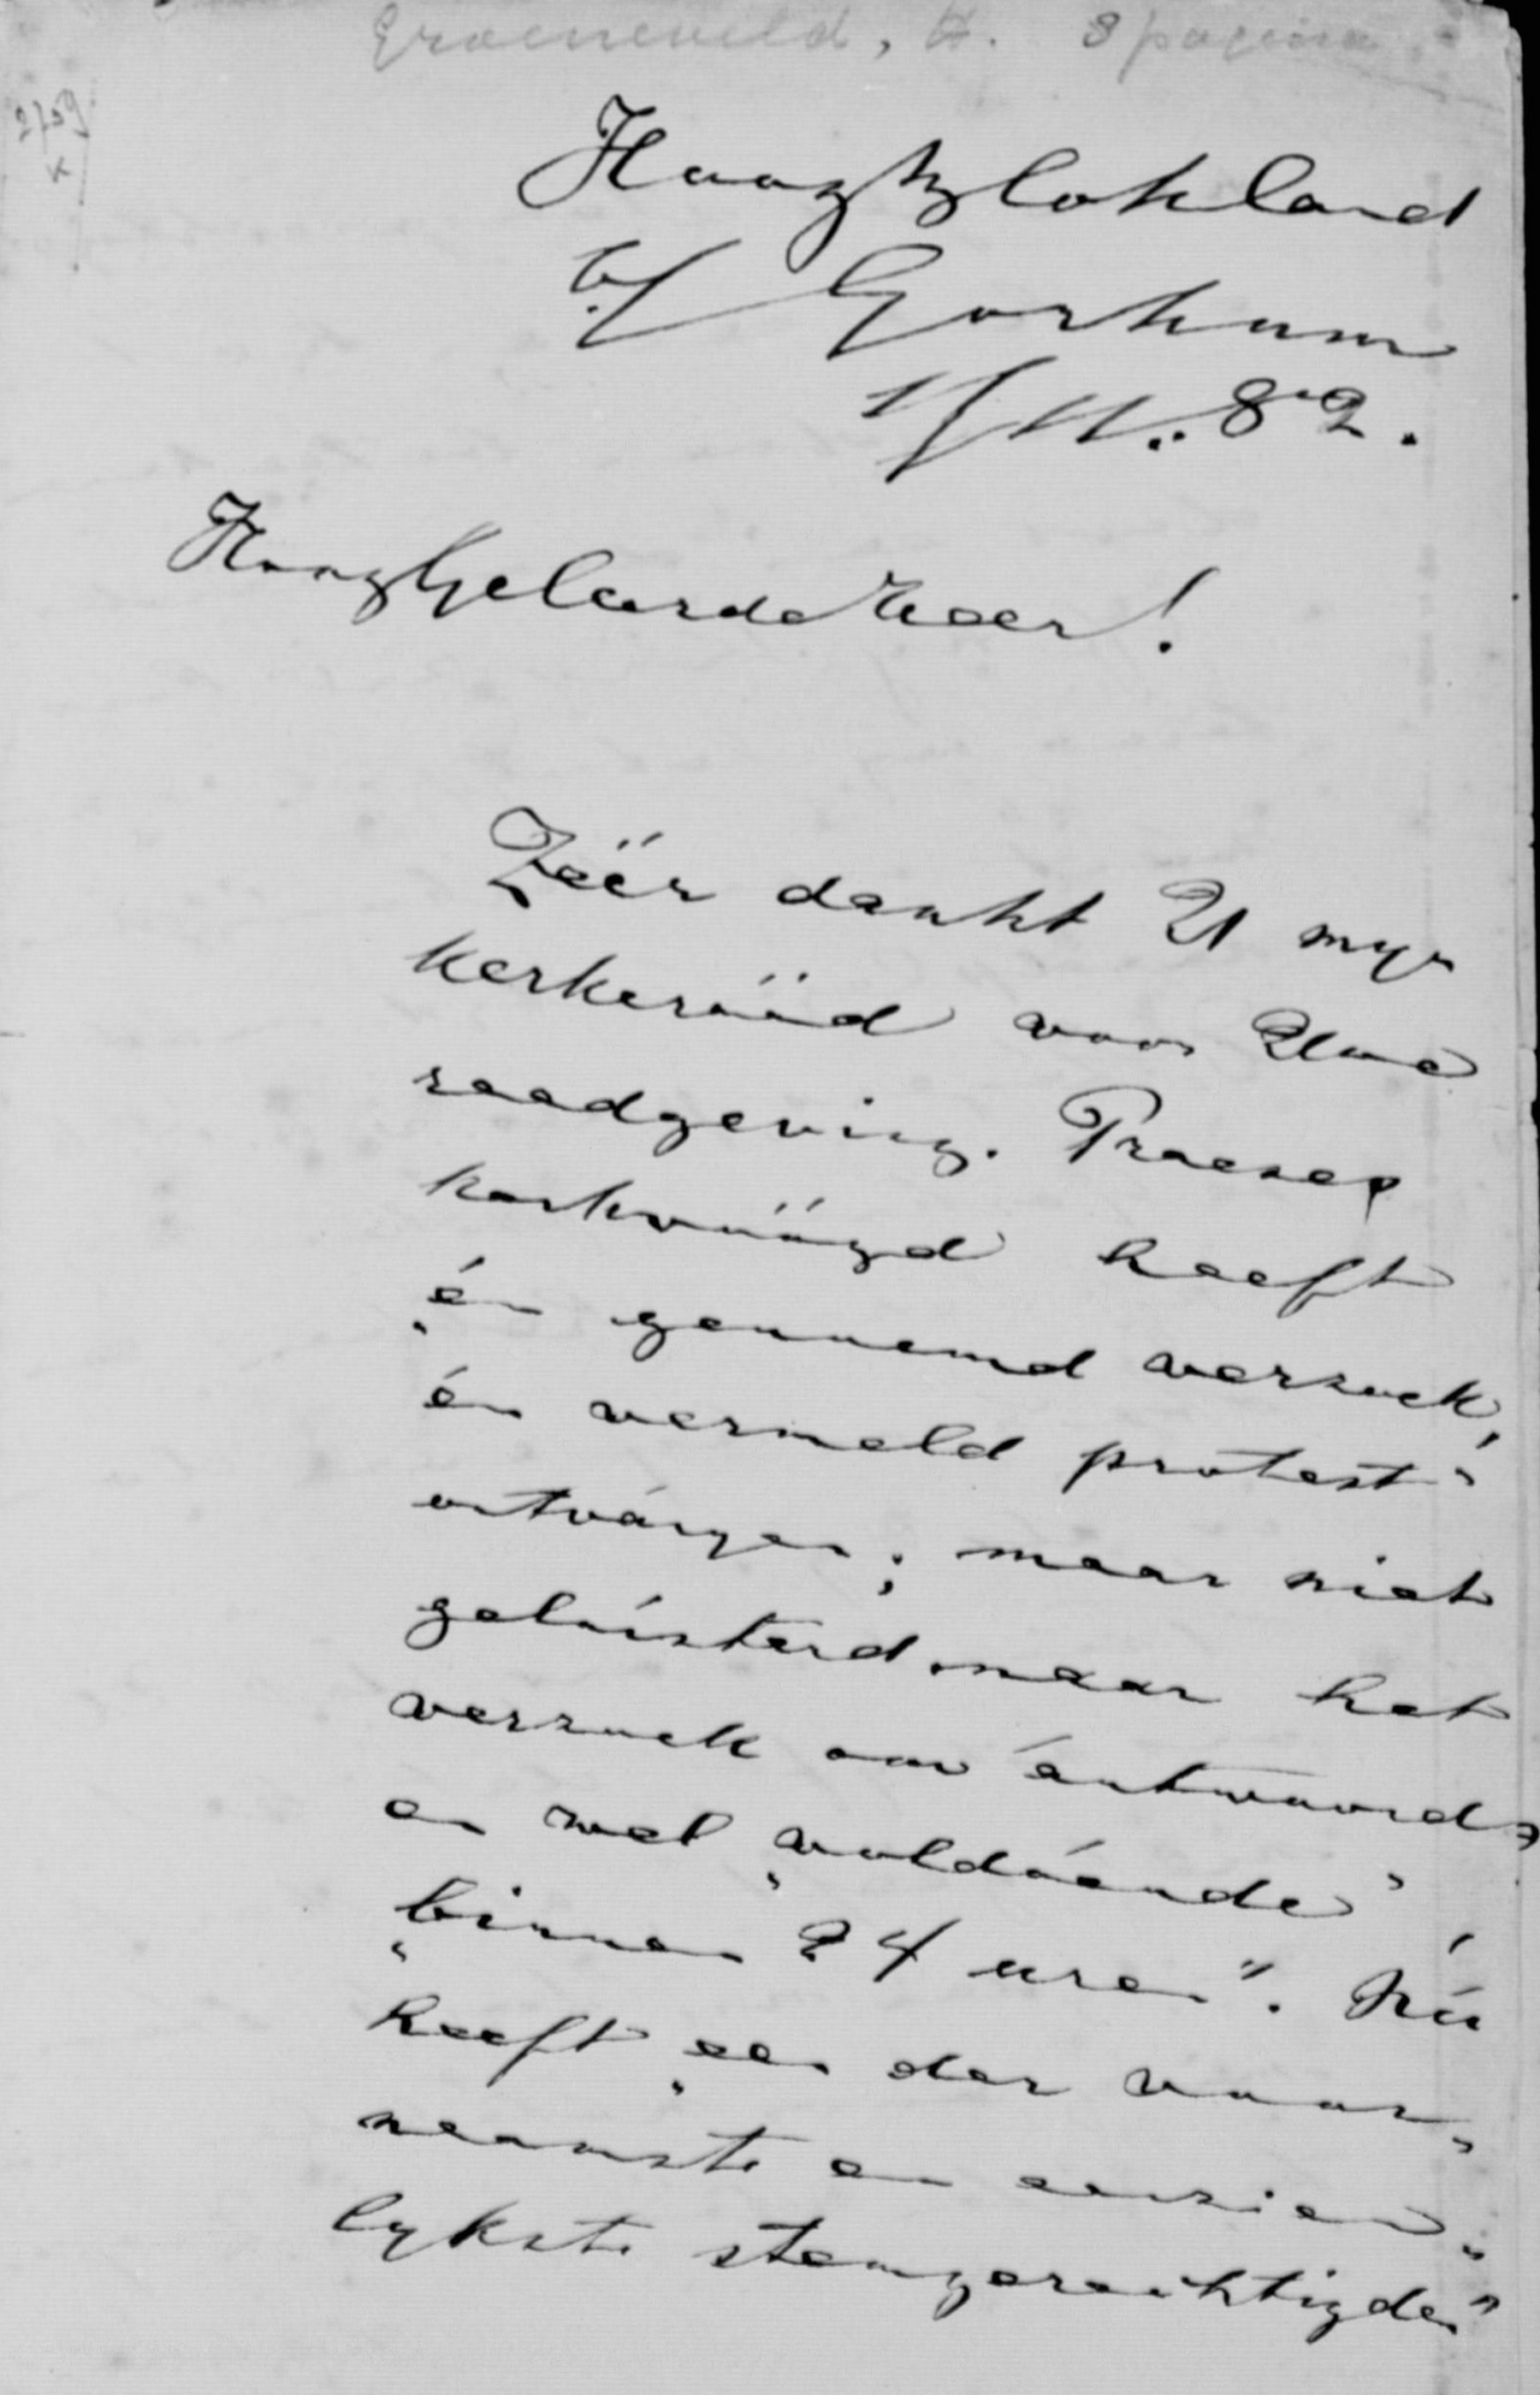 Groeneveld, H. 8 pagina
2/59
Hoogblokland
b/ Gorkum
1/11.. 82.
HoogGeleerde Heer!
Zéér dankt U myn
kerkeráád voor Uwe
raadgeving. Praeses
kerkvóógd heeft
„én genoemd verzoek,
én vermeld protest"
ontvángen; maar niet
geluísterd naar het
verzoek om antwoord,
en wel „voldóénde",
„binnen 24 uren". Nú
heeft „een der voor„
naamste en aanzien„
lykste stemgerechtigden"